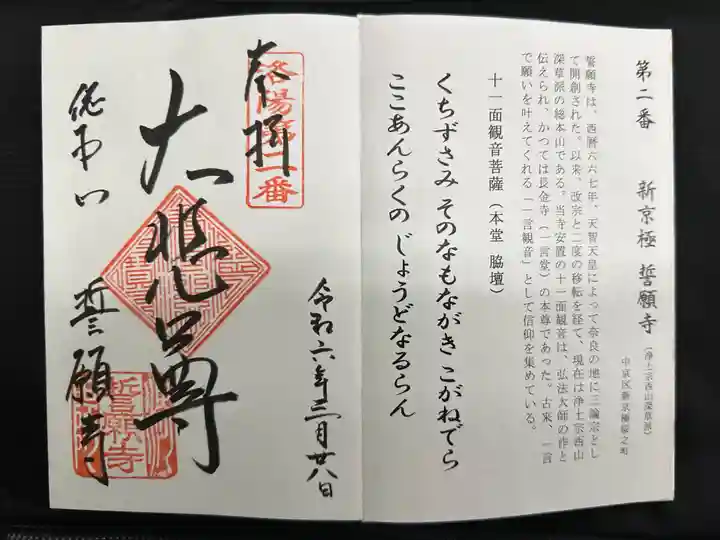 第二番　新京極　誓願寺
(浄土宗西山深草派)
中京区新京極桜之町
誓願寺は、西暦六六七年、天智天皇によって奈良の地に三論宗とし
て開創された。以来、改宗と二度の移転を経て、現在は浄土宗西山
深草派の総本山である。当寺安置の十一面観音は、弘法大師の作と
伝えられ、かつては長金寺(一言堂)の本尊であった。古来、一言
で願いを叶えてくれる「一言観音」として信仰を集めている。
十一面観音菩薩(本堂　脇壇)
くちずさみ そのなもながき こがねでら
ここあんらくの じょうどなるらん
令和六年三月廿八日
奉拝
洛陽第二番
大悲尊
誓願寺
誓願寺